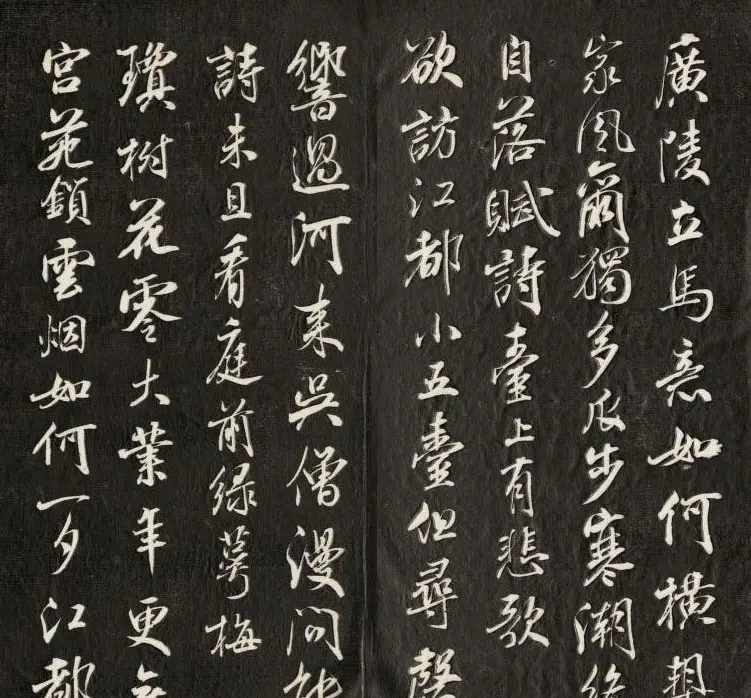 廣陵立馬意如何橫槊
家風爾獨多瓜步寒潮終
自落賦詩臺上有悲歌
欲訪江都小五臺但尋磬
響過河来吳僧漫問能
詩未且看庭前綠萼梅
瓊樹花零大業年更無
宮苑鎖雲烟如何一夕江都